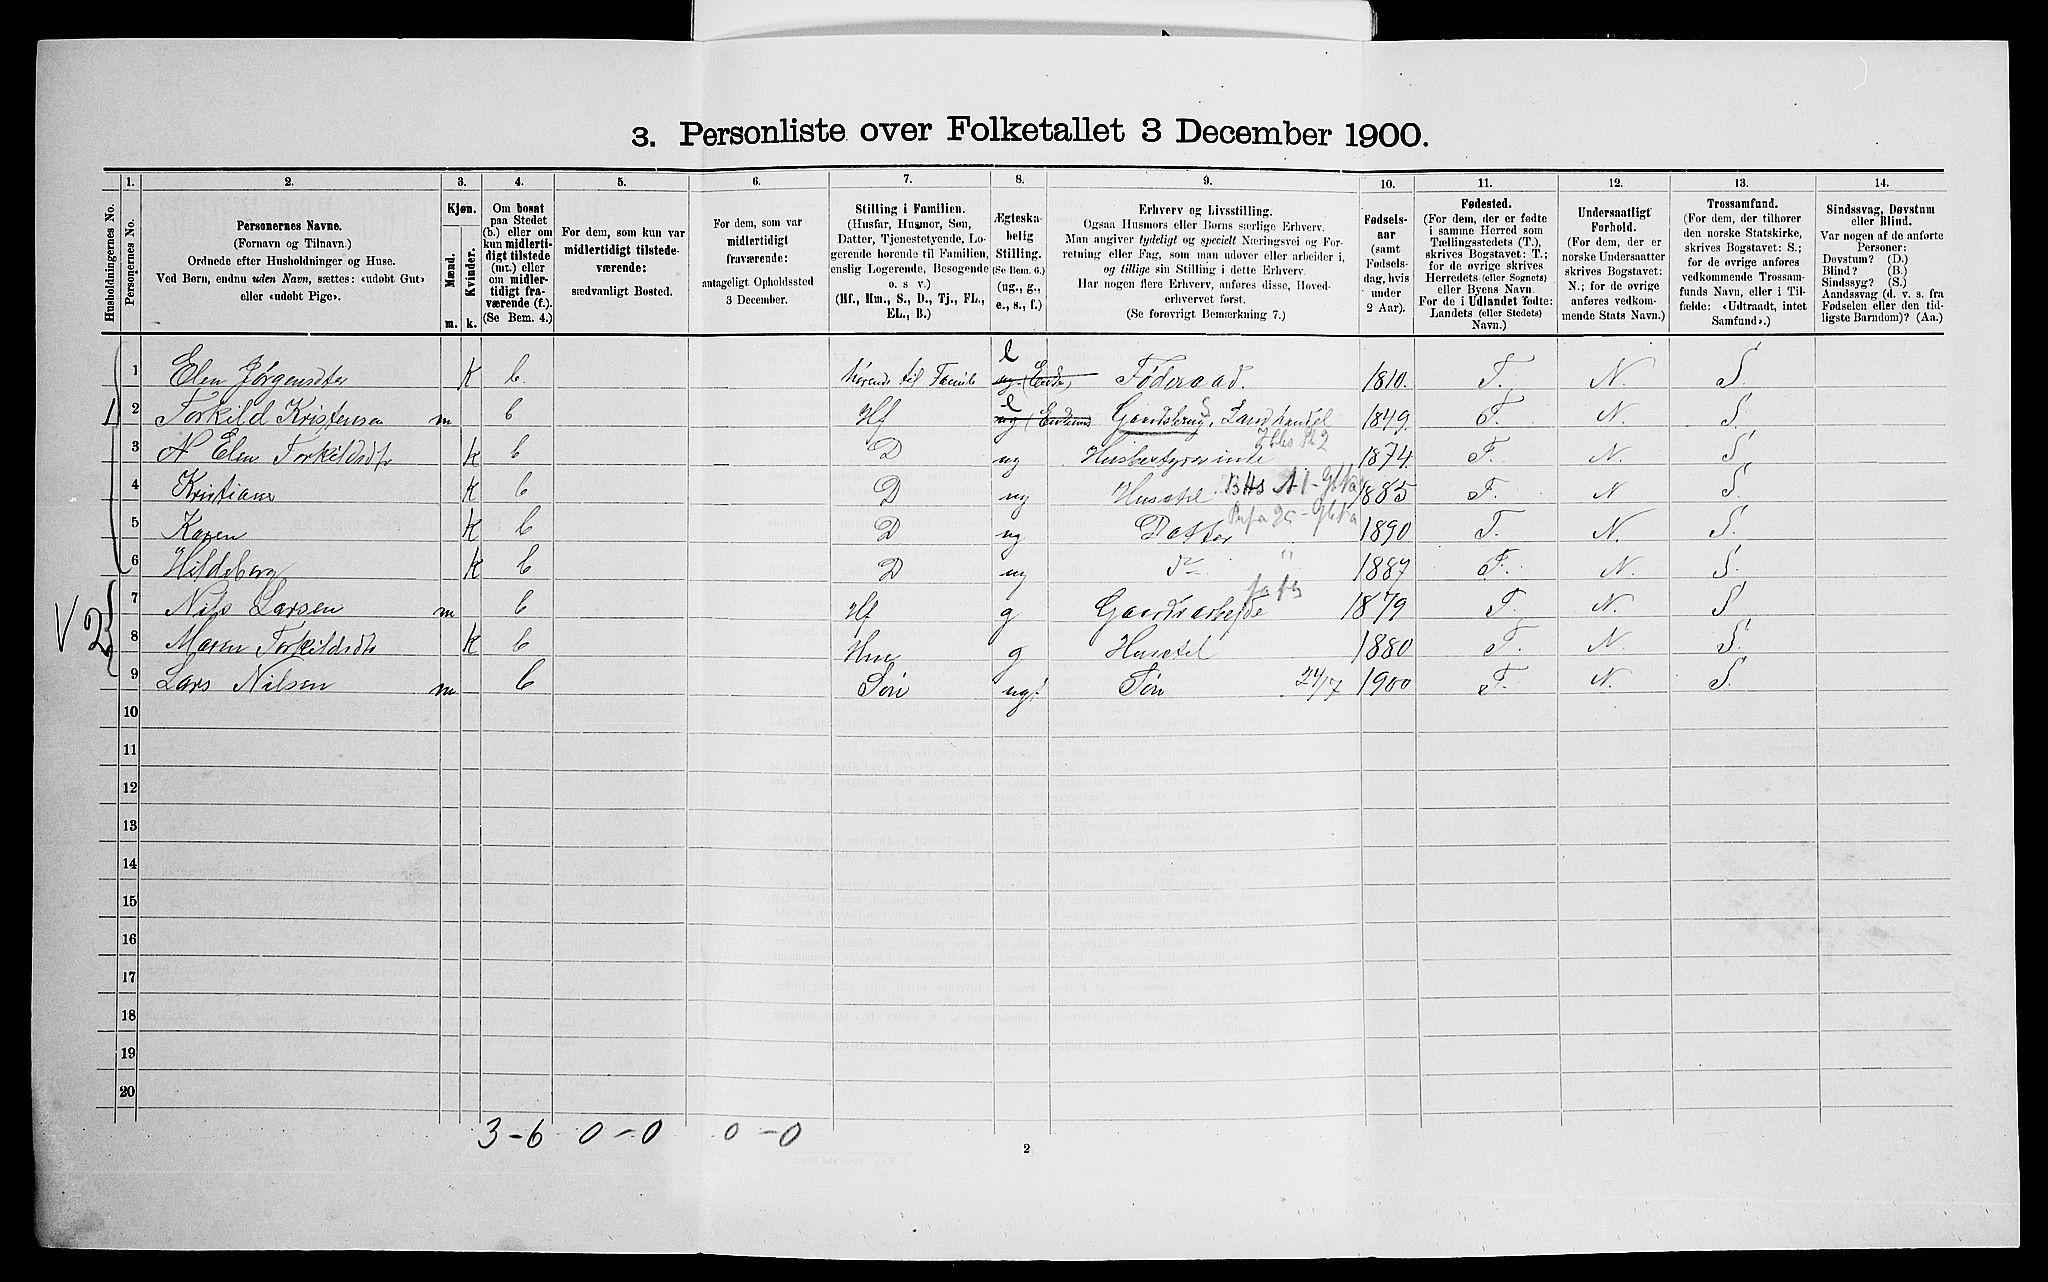 3. Personliste over Folketallet 3 December 1900.
1. 2. 3. 4. 5. 6. 7. 8. 9. 10. 11. 12. 13. 14.
Husholdningernes No.
Personernes No.
Personernes Navne.
(Fornavn og Tilnavn.)
Ordnede efter Husholdninger og Huse.
Ved Børn, endnu uden Navn, sættes: «udøbt Gut»
eller «udøbt Pige».
Kjøn.
Mænd.
Kvinder.
m. k.
Om bosat
paa Stedet
(b.) eller om
kun midlerti-
digt tilstede
(mt.) eller
om midler-
tidigt fra-
værende (f.).
(Se Bem. 4.)
For dem, som kun var
midlertidigt tilstede-
værende:
sædvanligt Bosted.
For dem, som var
midlertidigt
fraværende:
antageligt Opholdssted
3 December.
Stilling i Familien.
(Husfar, Husmor, Søn,
Datter, Tjenestetyende, Lo-
gerende hørende til Familien,
enslig Logerende, Besøgende
o. s. v.)
(Hf., Hm., S., D., Tj., FL.,
EL., B.)
Ægteska-
belig
Stilling.
(Se Bem. 6.)
(ug., g.,
e., s., f.)
Erhverv og Livsstilling.
Ogsaa Husmors eller Børns særlige Erhverv.
Man angiver tydeligt og specielt Næringsvei og For-
retning eller Fag, som man udøver eller arbeider i,
og tillige sin Stilling i dette Erhverv.
Har nogen flere Erhverv, anføres disse, Hoved-
erhvervet først.
(Se forøvrigt Bemærkning 7.)
Fødsels-
aar
(samt
Fødsels-
dag, hvis
under
2 Aar).
Fødested.
(For dem, der er fødte
i samme Herred som
Tællingsstedets (T.),
skrives Bogstavet: T.;
for de øvrige skrives
Herredets (eller Sognets)
eller Byens Navn.
For de i Udlandet fødte:
Landets (eller Stedets)
Navn.)
Undersaatligt
Forhold.
(For dem, der er
norske Undersaatter
skrives Bogstavet:
N.; for de øvrige
anføres vedkom-
mende Stats Navn.)
Trossamfund.
(For dem, der tilhører
den norske Statskirke,
skrives Bogstavet: S.;
for de øvrige anføres
vedkommende Trossam-
funds Navn, eller i Til-
fælde: «Udtraadt, intet
Samfund».)
Sindssvag, Døvstum
eller Blind.
Var nogen af de anførte
Personer:
Døvstum? (D.)
Blind? (B.)
Sindssyg? (S.)
Aandssvag (d. v. s. fra
Fødselen eller den tid-
ligste Barndom)? (Aa.)
1 Elen Jørgensdter k b hørende til Famile e ug. (Enke) Føderaad. 1810. T. N. S.
1 2 Torkild Kristensen m b Hf e ug (Enkem Gaardsbrug, Landhandel 1849. T. N. S.
3 N Elen Torkildsdtr k b D ug Husbestyrerinde 1874. T. N. S.
4 Kristiane k b D ug Husstel 1885 T. N S.
5 Karen k b D ug Datter 1890 T. N. S.
6 Hildeborg k b D ug do " 1887 T. N. S.
7 Nils Larsen m b Hf g Gaardsarbejde 1879 T. N. S
V 2 8 Maren Torkildsdtr k b Hm g Husstel 1880 T. N. S.
9 Lars Nilsen m b Søn ug. Søn 24/7 1900 T. N. S.
10
11
12
13
14
15
16
17
18
19
20
3-6 0-0 0-0
2